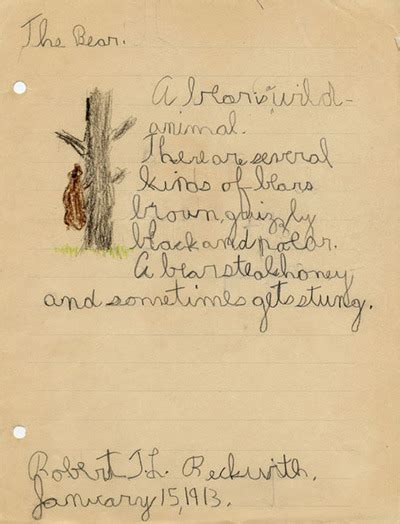 The Bear.
A bear is "wild-
animal.
There are several
kinds of bears
brown, grizzly
black and polar.
A bear steals honey
and sometimes gets stung.
Robert J. L. Beckwith.
January 15, 1913.